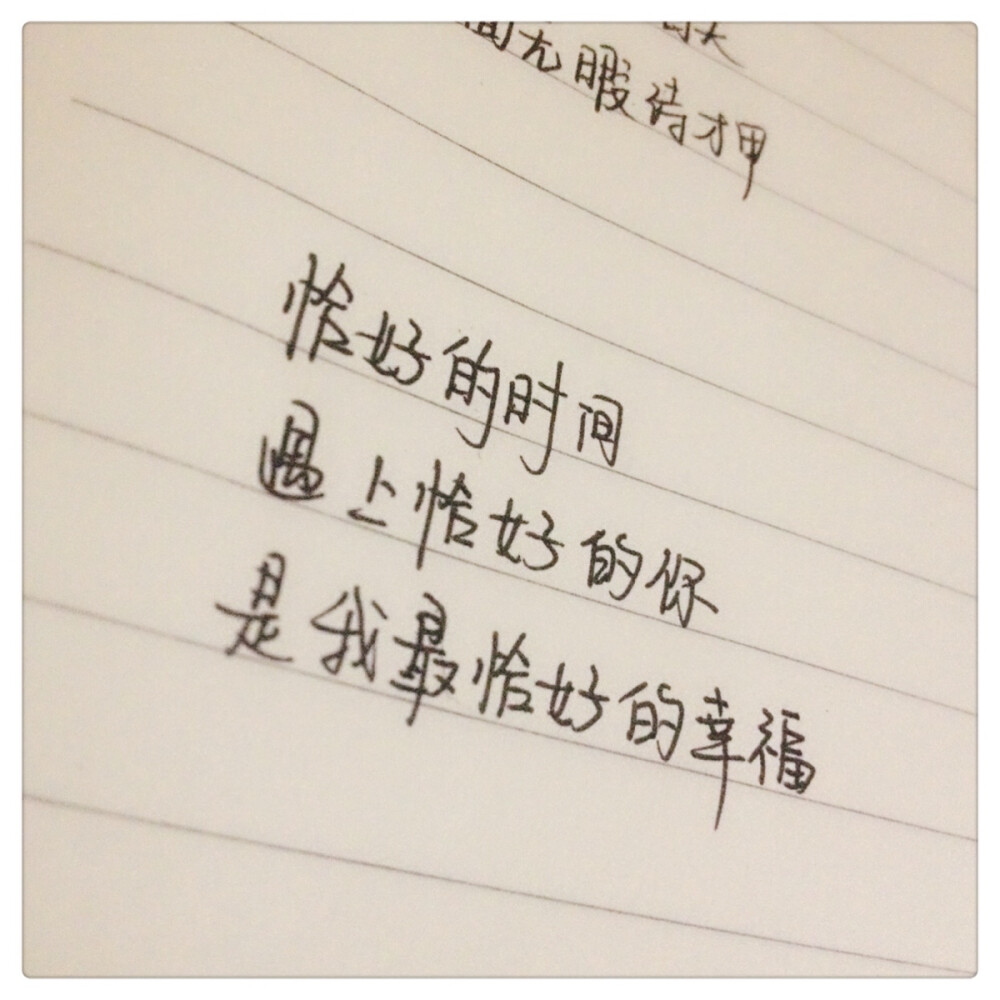 无暇待押
恰好的时间
遇上恰好的你
是我最恰好的幸福